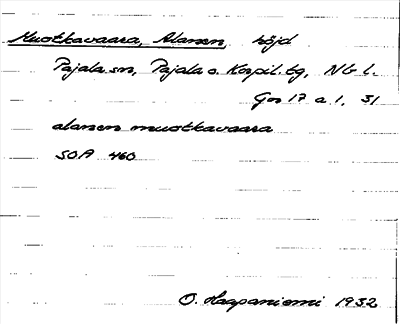 Muotkavaara, Alanen, höjd
Pajala sn, Pajala o. Korpil. tg, NB l.
Gos 17 a 1, 31
alanen muotkavaara
SOA 460
O. Haapaniemi 1932